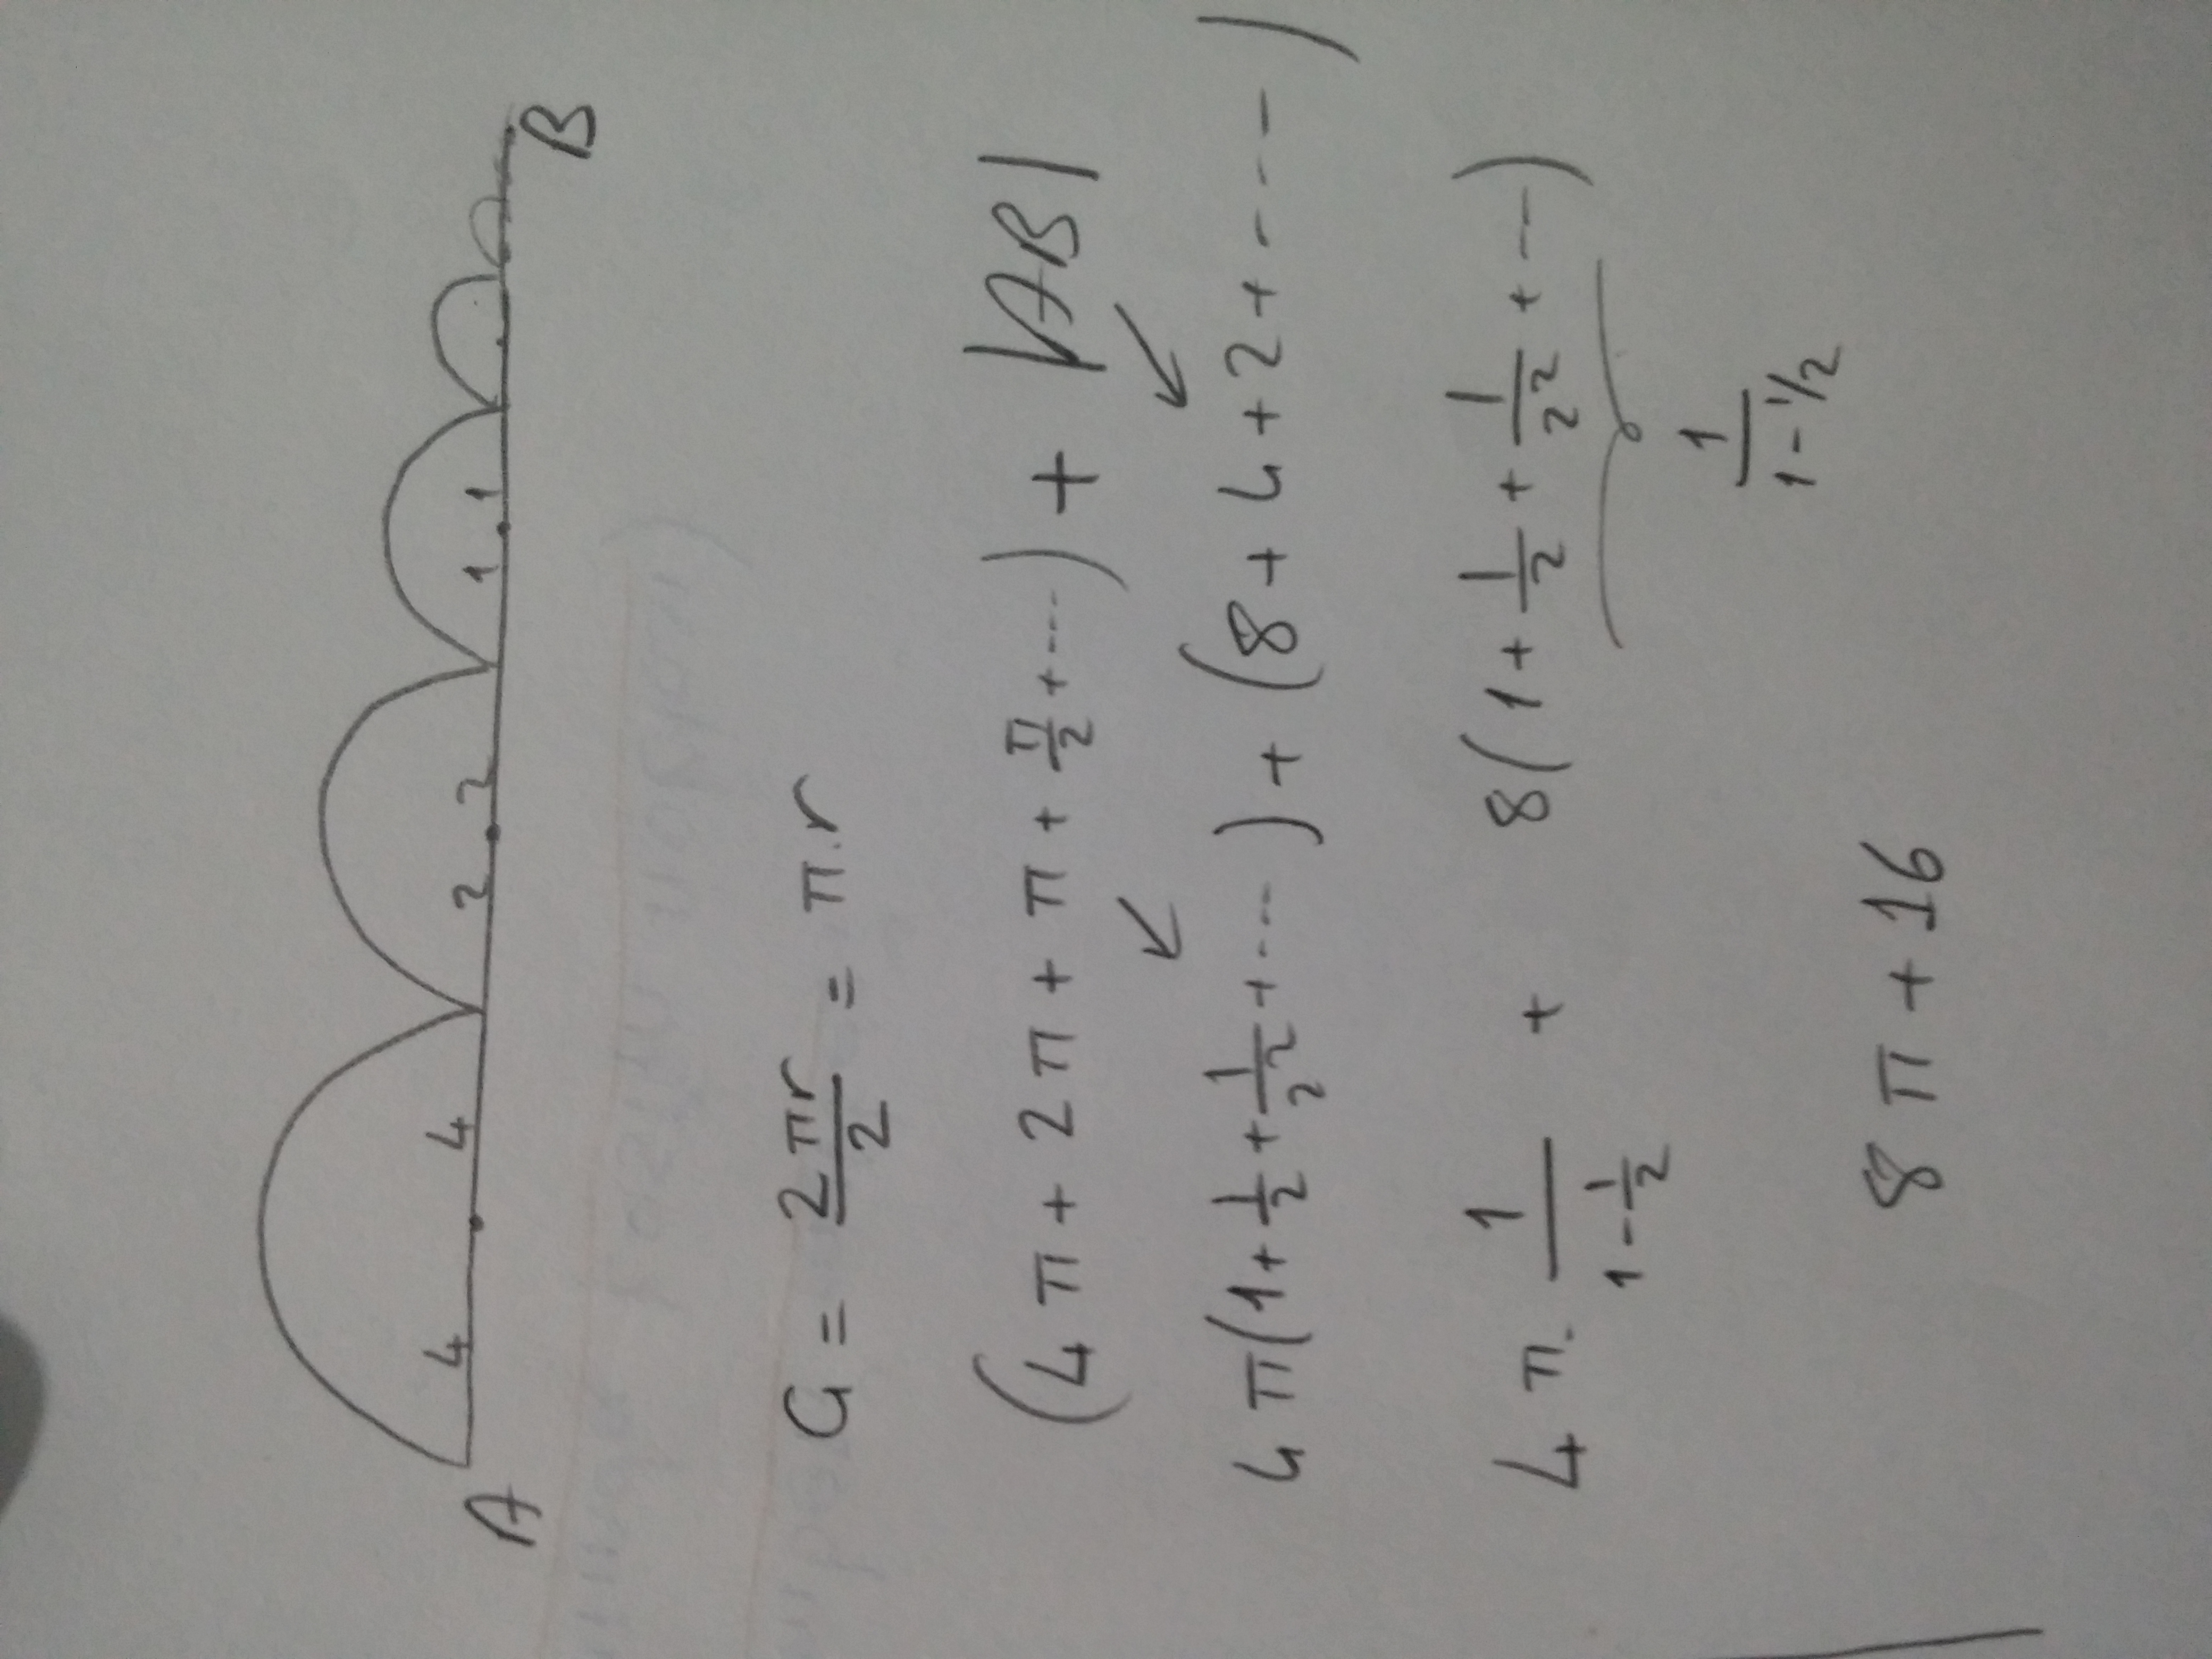 4 4 2 2 1 1
A B
Ç = 2πr/2 = π.r
(4π + 2π + π + π/2 + ...) + |AB|
4π(1 + 1/2 + 1/2² + ...) + (8 + 4 + 2 + ...)
4π. 1/(1-1/2) + 8(1 + 1/2 + 1/2² + ...)
1/(1-1/2)
8π + 16